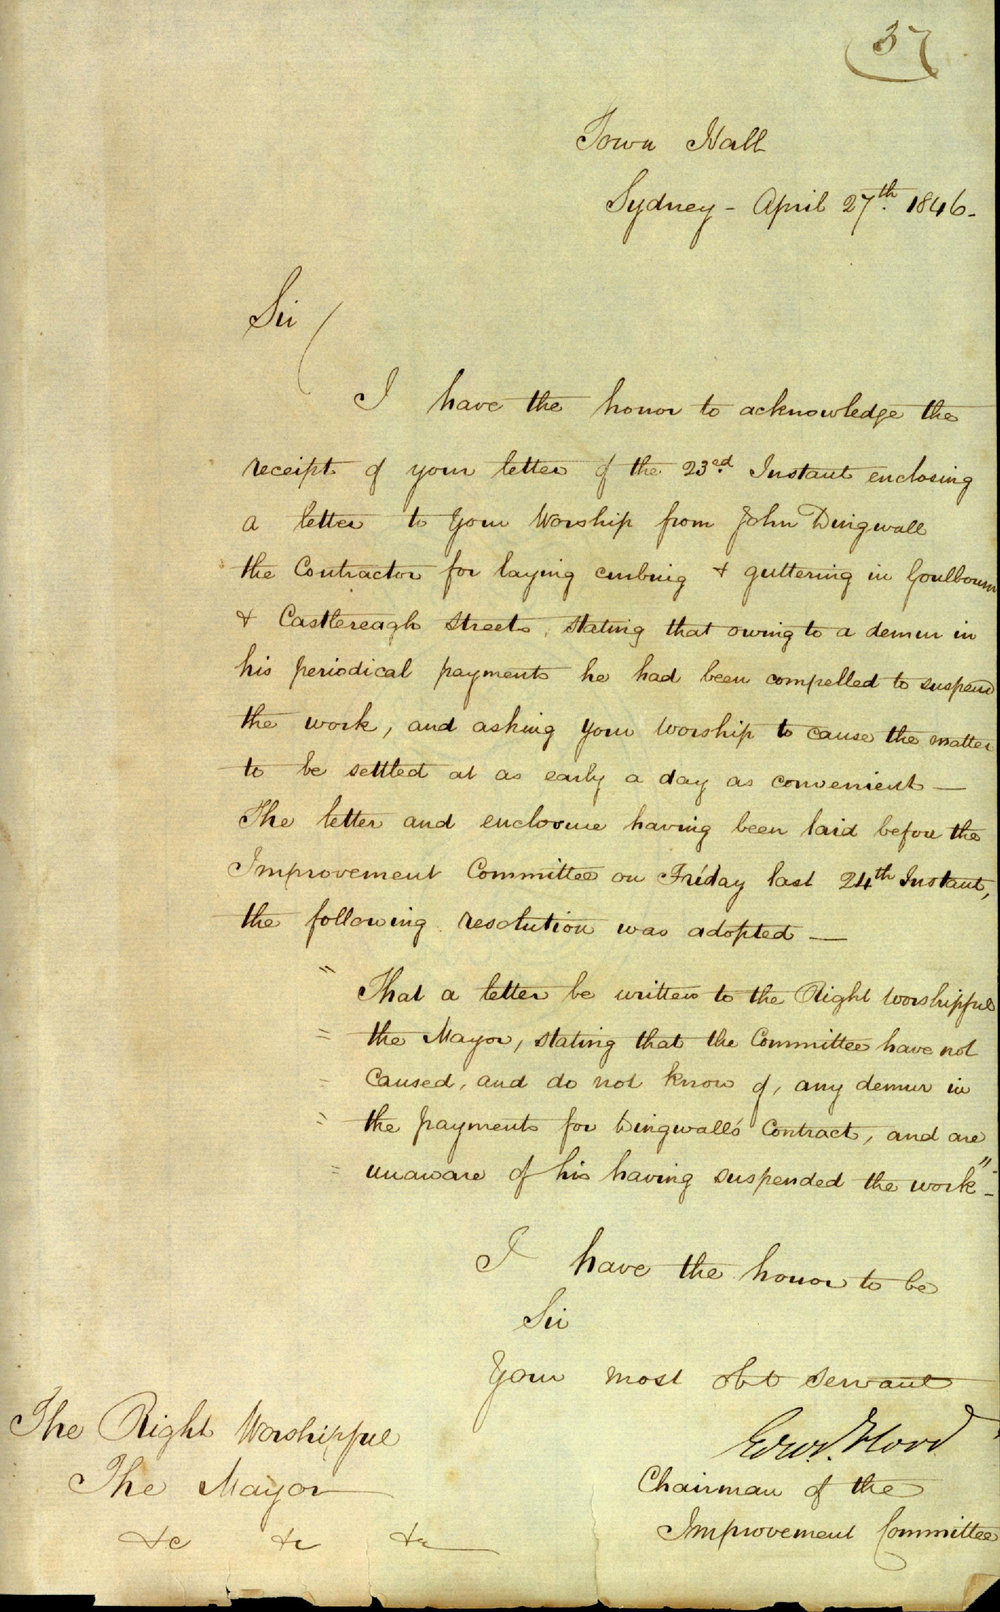 37
Town Hall
Sydney - April 27th. 1846 -
Sir
I have the honor to acknowledge the
receipt of your letter of the 23rd. Instant enclosing
a letter to Your Worship from John Dingwall
the Contractor for laying curbing & guttering in Goulbourn
& Castlereagh Streets, stating that owing to a demur in
his periodical payments he had been compelled to suspend
the work, and asking Your Worship to cause the matter
to be settled at as early a day as convenient —
The letter and enclosure having been laid before the
Improvement Committee on Friday last 24th Instant,
the following resolution was adopted —
" That a letter be written to the Right Worshipful
" the Mayor, stating that the Committee have not
" caused, and do not know of, any demur in
" the payments for Dingwall's Contract, and are
" unaware of his having suspended the work" -
I have the honor to be
Sir
Your most obt servant
Edwd. Flood
Chairman of the
Improvement Committee
The Right Worshipful
The Mayor
&c &c &c